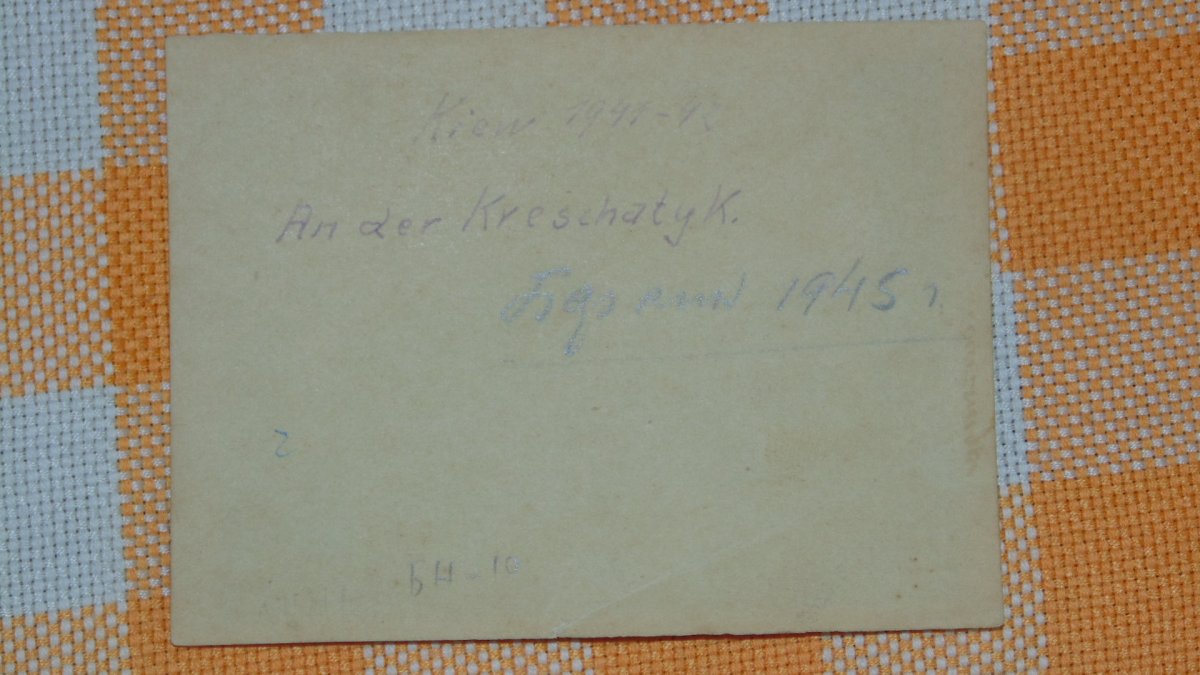 Kiew 1941-42
An der Kreschatyk.
1945 г.
2
БН-10